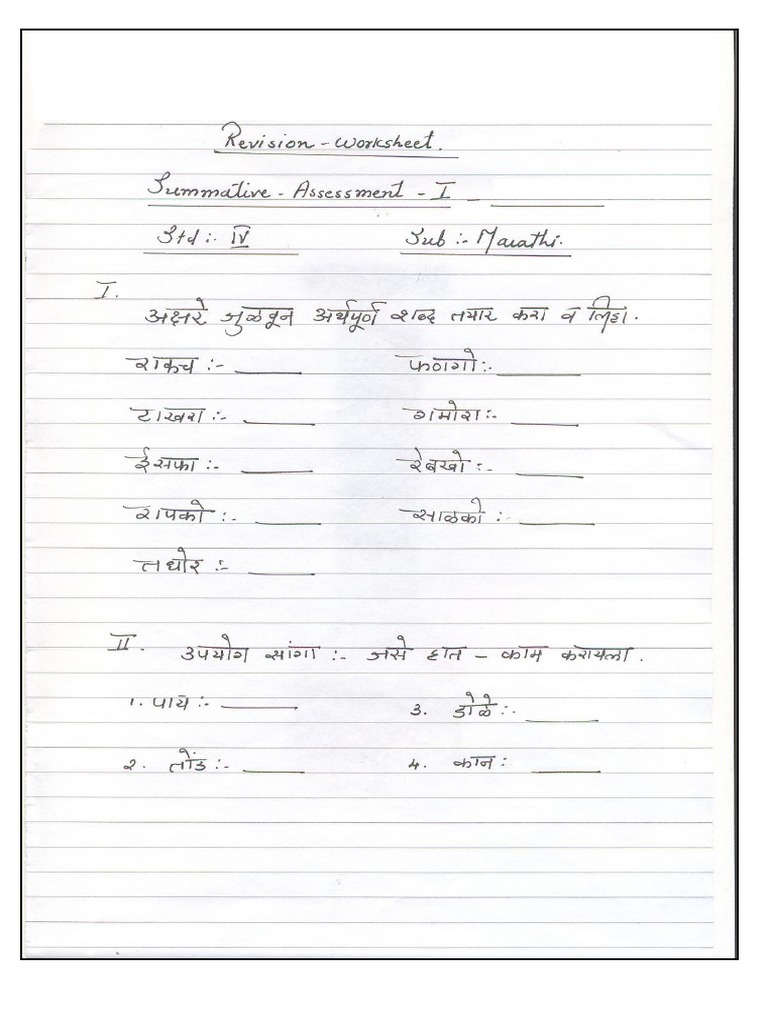 Revision - Worksheet.
Summative - Assessment - I - ________
Std :- IV Sub :- Marathi.
I.
अक्षरे जुळवून अर्थपूर्ण शब्द तयार करा व लिहा.
राकच :- ______ फणगो :- ______
टाखरा :- ______ गमोरा :- ______
ईसफा :- ______ रेबखो :- ______
रापको :- ______ साळको :- ______
तथोर :- ______
II. उपयोग सांगा :- जसे हात - काम करायला.
१. पाय :- ______ ३. डोळे :- ______
२. तोंड :- ______ ४. कान : ______